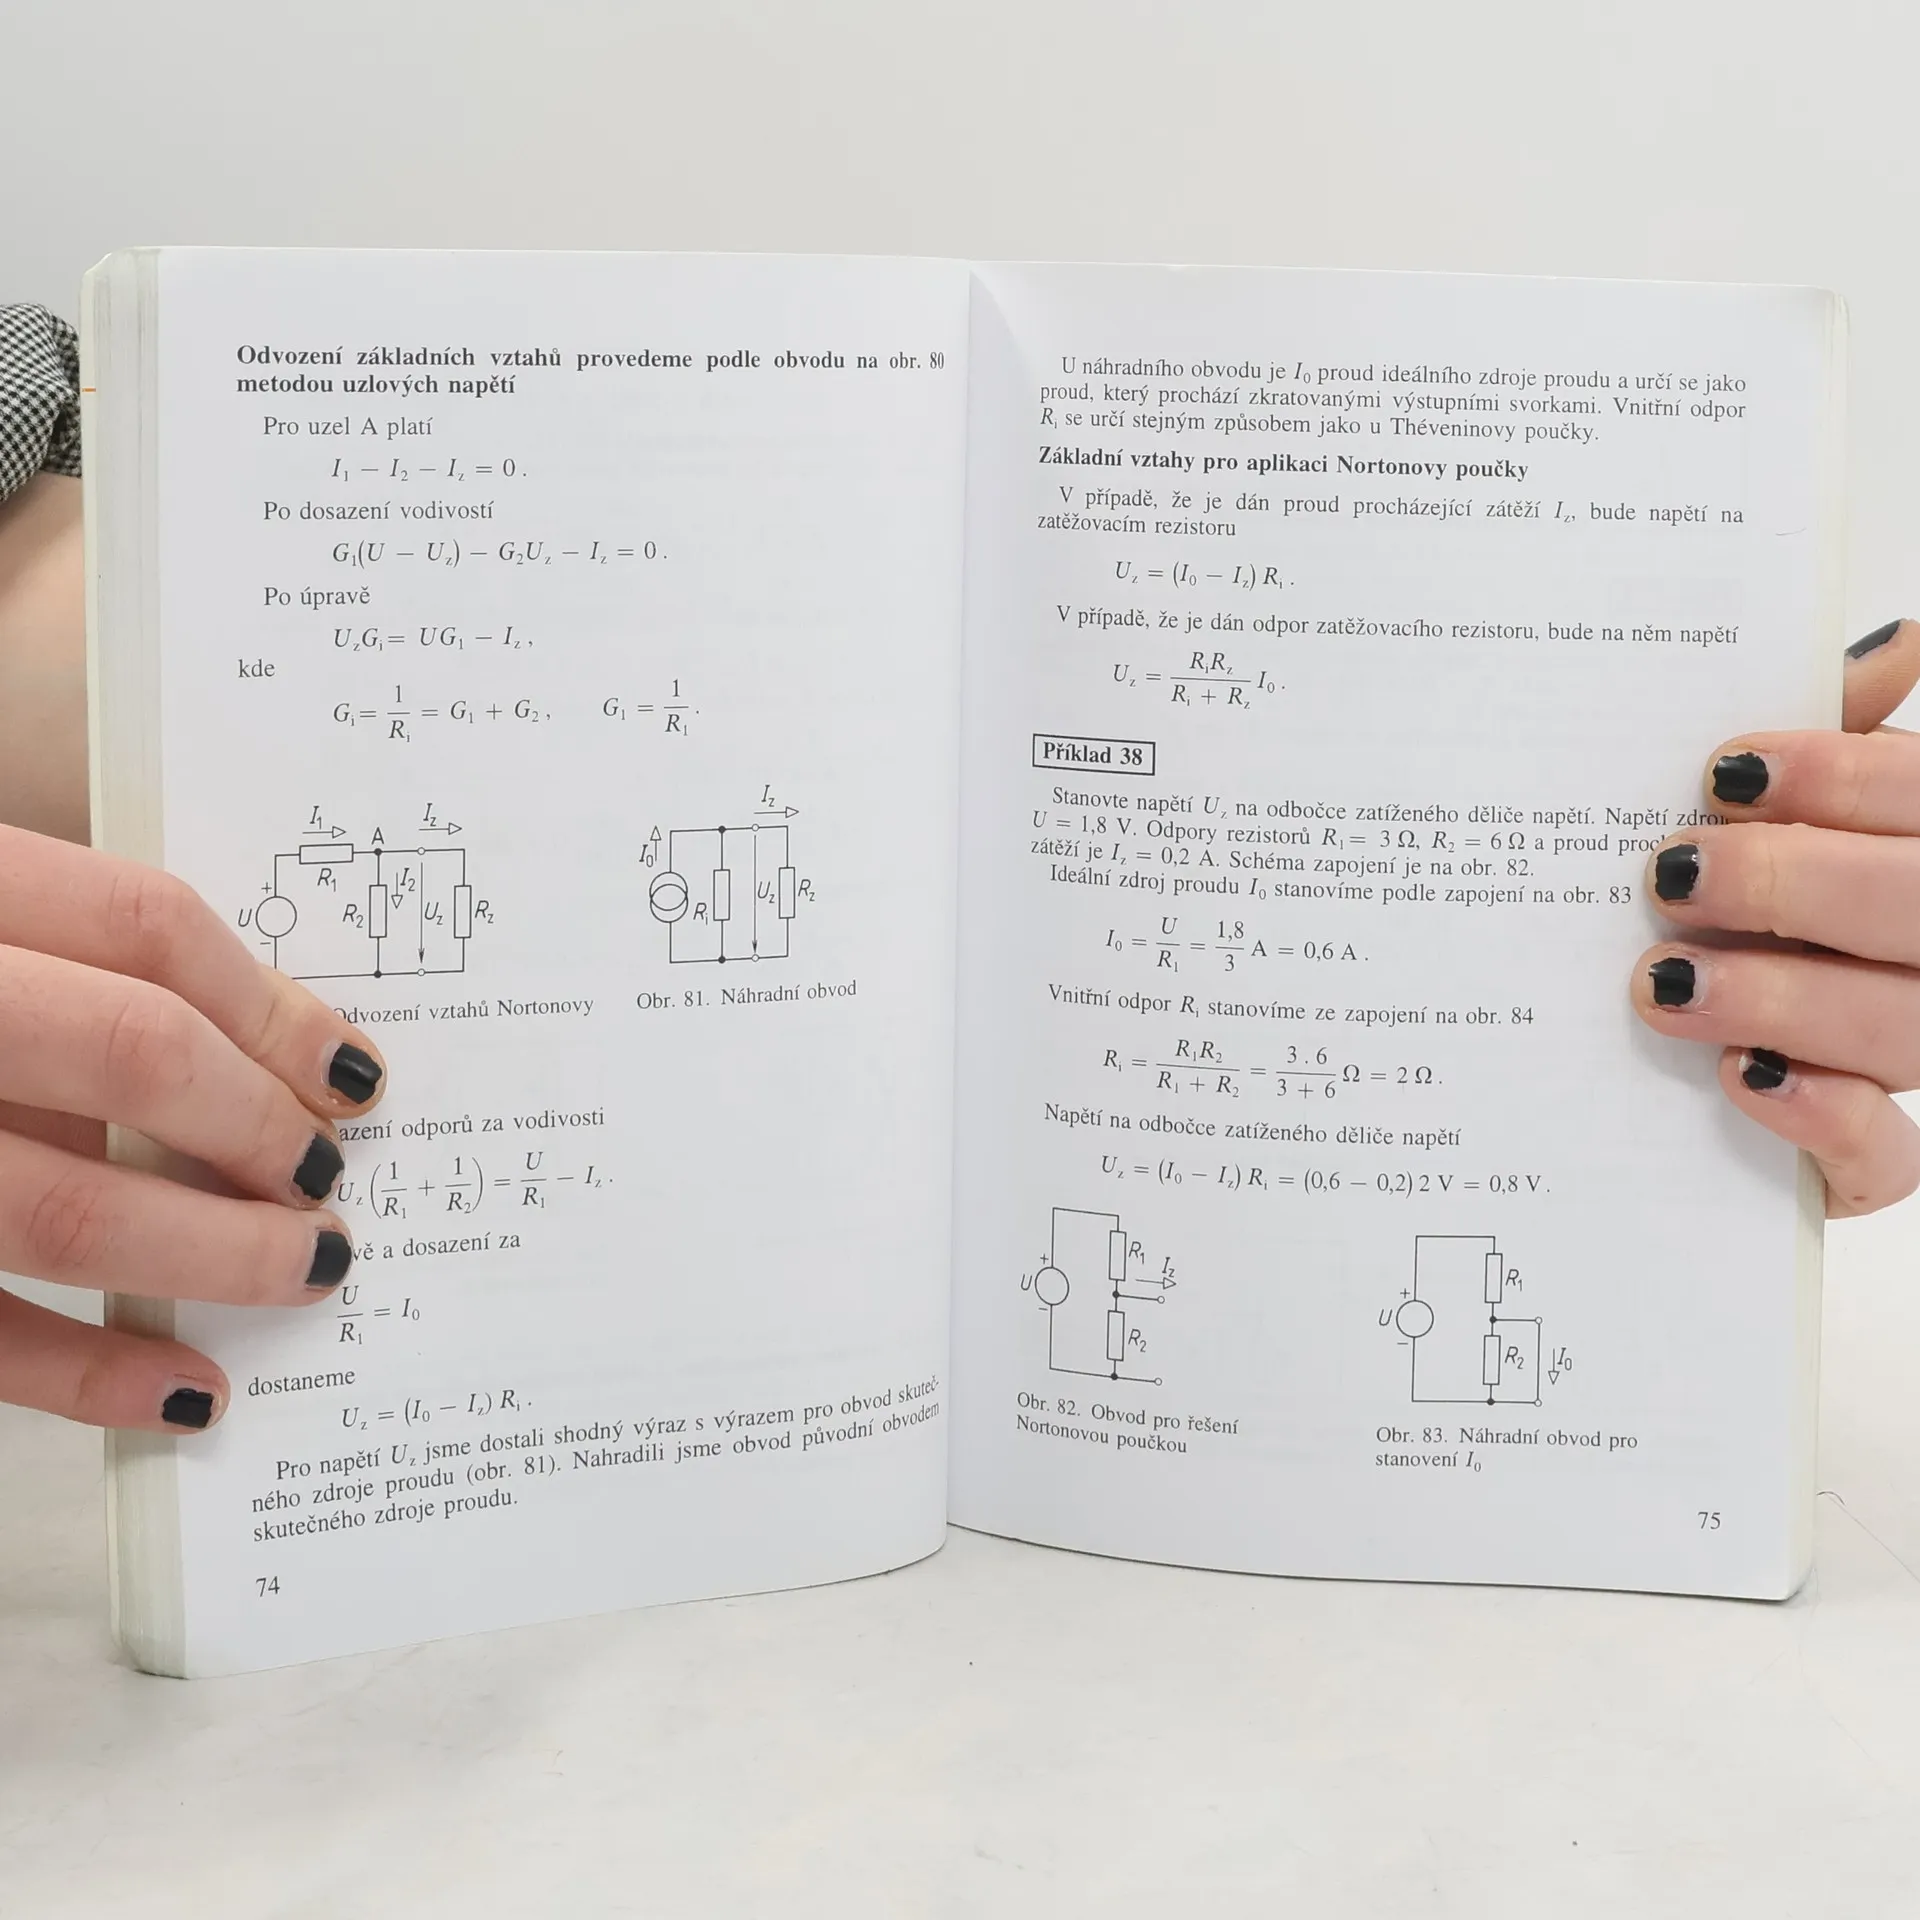 Odvození základních vztahů provedeme podle obvodu na obr. 80
metodou uzlových napětí
Pro uzel A platí
I₁ − I₂ − I_z = 0 .
Po dosazení vodivostí
G₁(U − U_z) − G₂U_z − I_z = 0 .
Po úpravě
U_zG_i = UG₁ − I_z ,
kde
G_i = 1/R_i = G₁ + G₂ , G₁ = 1/R₁ .
I₁ A I_z
R₁ I₂
+ U − R₂ U_z R_z
I_z
I₀
R_i U_z R_z
Odvození vztahů Nortonovy
Obr. 81. Náhradní obvod
azení odporů za vodivosti
U_z (1/R₁ + 1/R₂) = U/R₁ − I_z .
vě a dosazení za
U/R₁ = I₀
dostaneme
U_z = (I₀ − I_z) R_i .
Pro napětí U_z jsme dostali shodný výraz s výrazem pro obvod skuteč-
ného zdroje proudu (obr. 81). Nahradili jsme obvod původní obvodem
skutečného zdroje proudu.
74
U náhradního obvodu je I₀ proud ideálního zdroje proudu a určí se jako
proud, který prochází zkratovanými výstupními svorkami. Vnitřní odpor
R_i se určí stejným způsobem jako u Théveninovy poučky.
Základní vztahy pro aplikaci Nortonovy poučky
V případě, že je dán proud procházející zátěží I_z, bude napětí na
zatěžovacím rezistoru
U_z = (I₀ − I_z) R_i .
V případě, že je dán odpor zatěžovacího rezistoru, bude na něm napětí
U_z = R_iR_z/(R_i + R_z) I₀ .
Příklad 38
Stanovte napětí U_z na odbočce zatíženého děliče napětí. Napětí zdroj
U = 1,8 V. Odpory rezistorů R₁ = 3 Ω, R₂ = 6 Ω a proud proc
zátěží je I_z = 0,2 A. Schéma zapojení je na obr. 82.
Ideální zdroj proudu I₀ stanovíme podle zapojení na obr. 83
I₀ = U/R₁ = 1,8/3 A = 0,6 A .
Vnitřní odpor R_i stanovíme ze zapojení na obr. 84
R_i = R₁R₂/(R₁ + R₂) = 3 . 6/(3 + 6) Ω = 2 Ω .
Napětí na odbočce zatíženého děliče napětí
U_z = (I₀ − I_z) R_i = (0,6 − 0,2) 2 V = 0,8 V .
+ U − R₁ I_z R₂
+ U − R₁ R₂ I₀
Obr. 82. Obvod pro řešení
Nortonovou poučkou
Obr. 83. Náhradní obvod pro
stanovení I₀
75